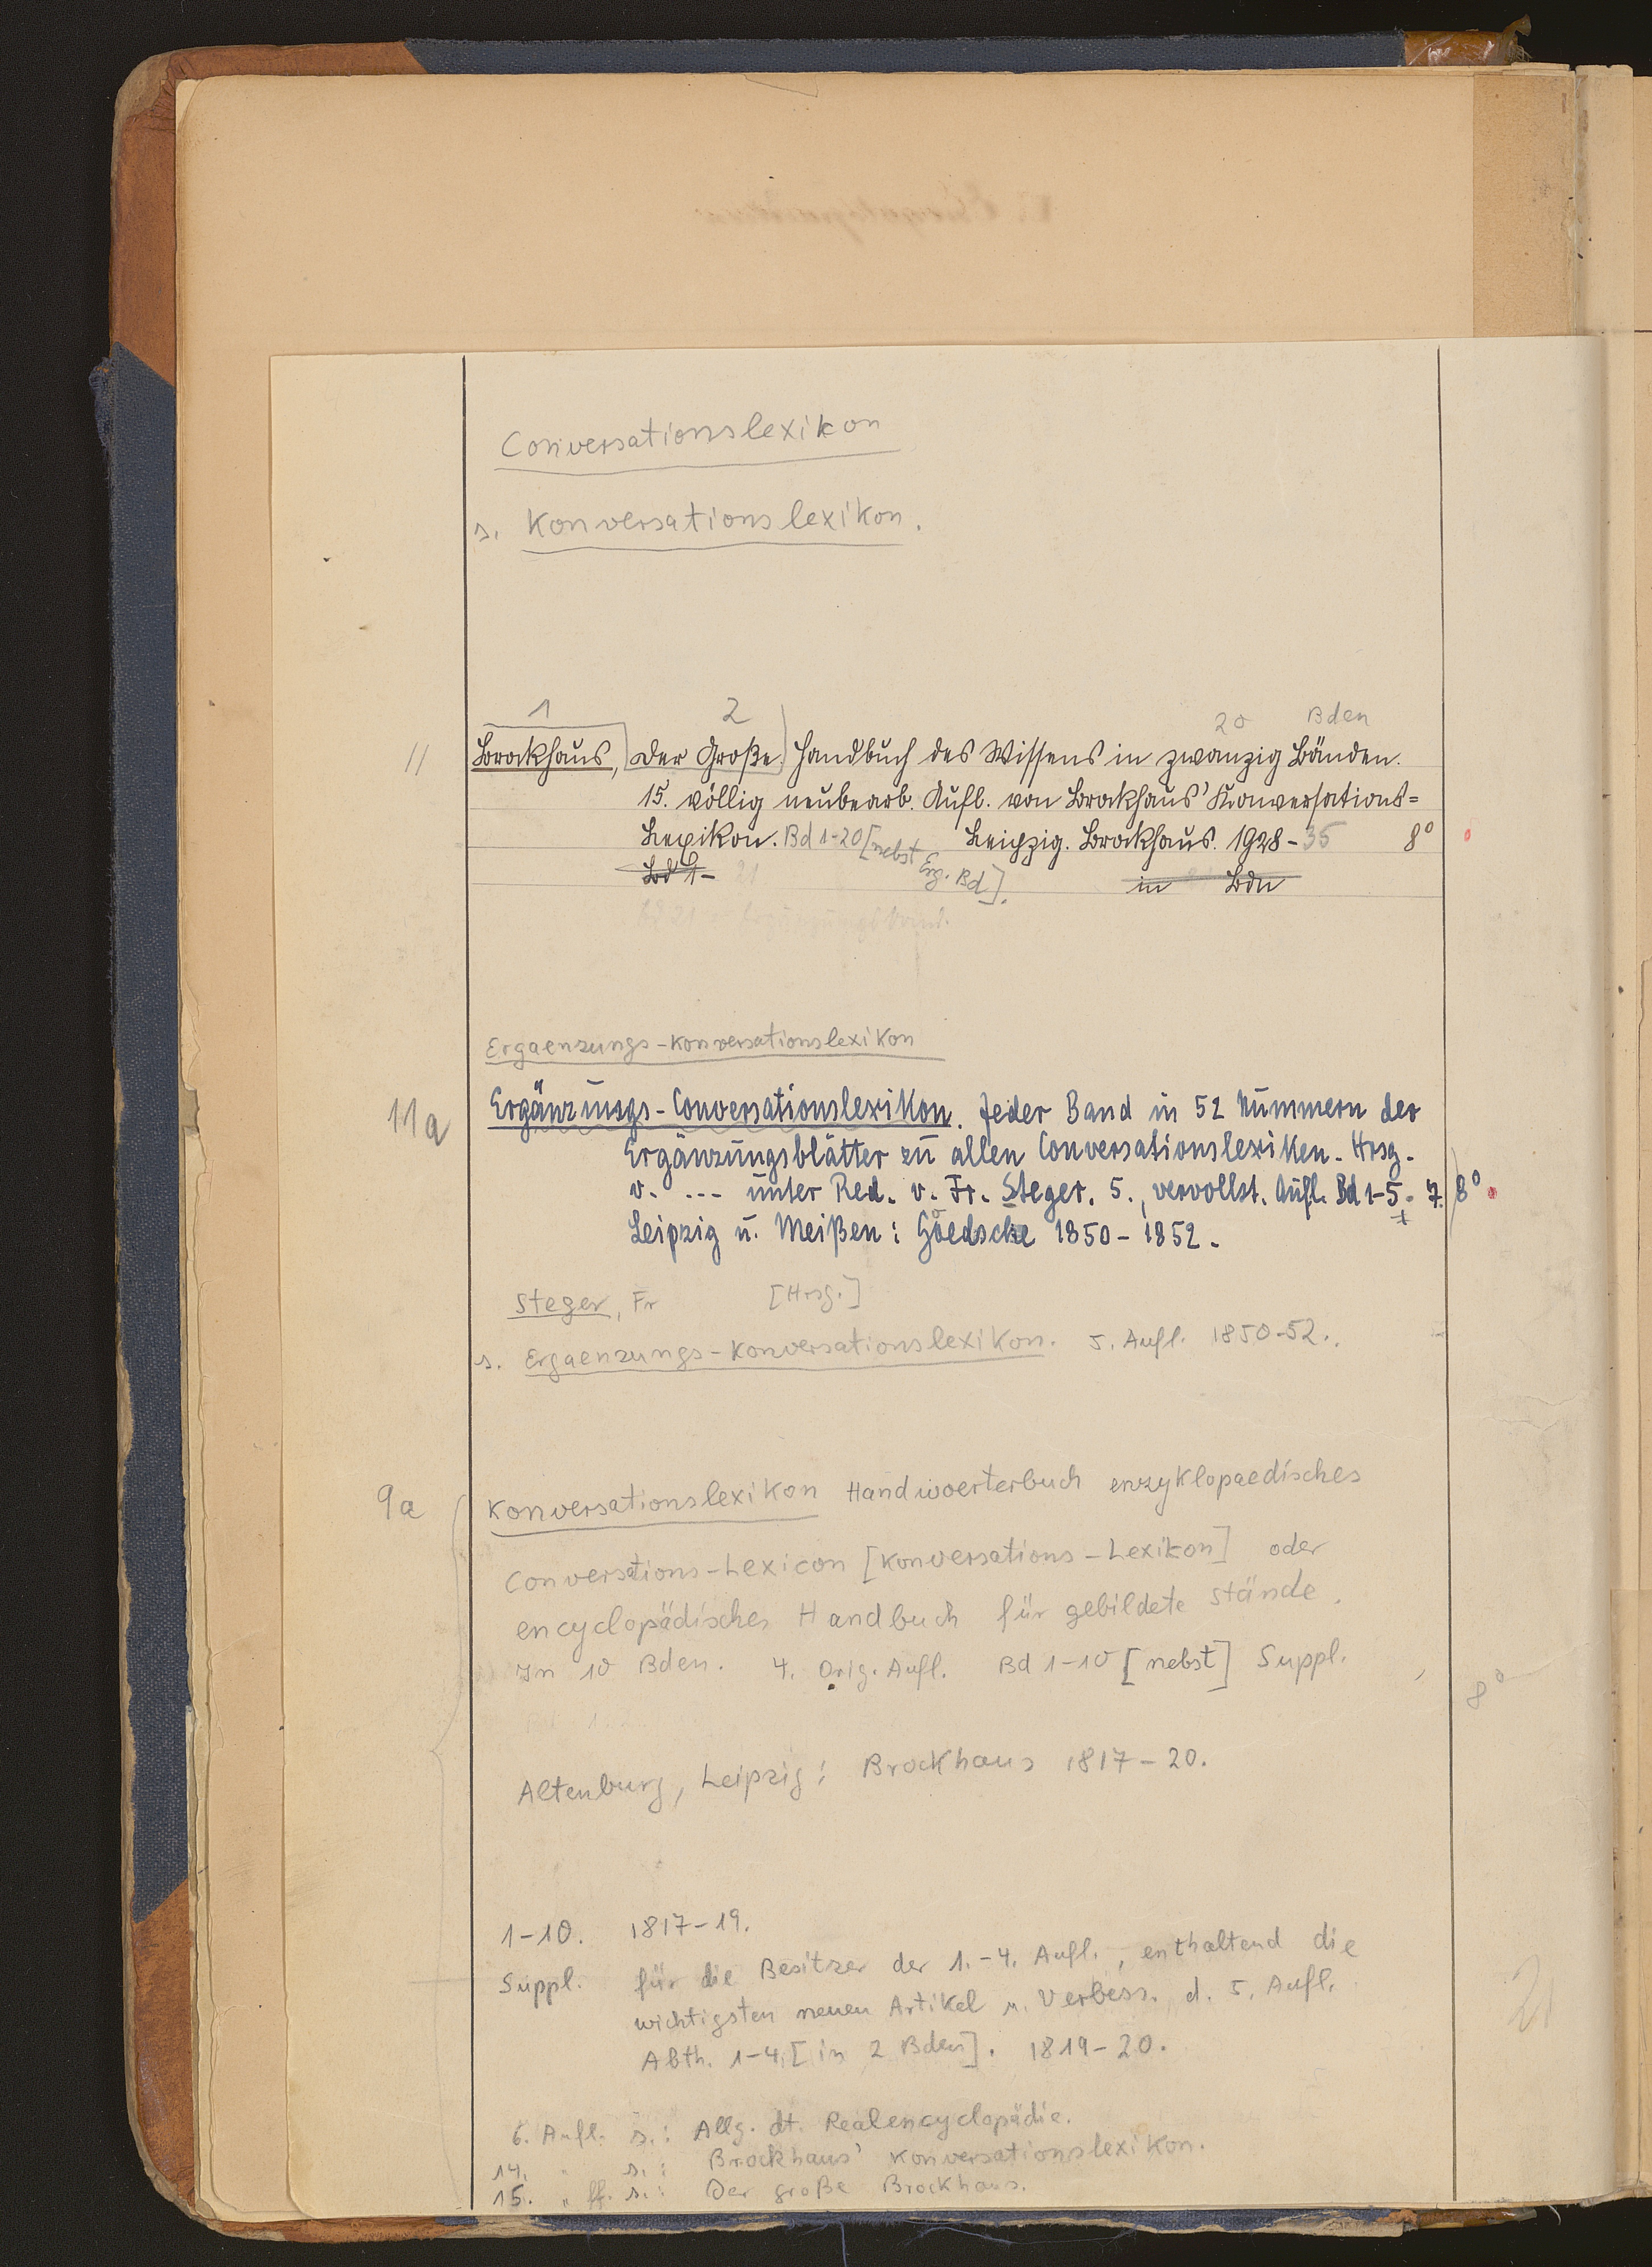 Conversationslexikon
s. Konversationslexikon.
1 2 20 Bden
11 Brockhaus, Der Große. Handbuch des Wissens in zwanzig Bänden.
15. völlig neubearb. Aufl. von Brockhaus' Konversations=
Lexikon. Bd 1-20 [nebst Erg. Bd]. Leipzig. Brockhaus. 1928-35 8°
Bd 1- 21 in Bdn
Bd 21 = Ergänzungsband.
Ergaenzungs-Konversationslexikon
11a Ergänzungs-Conversationslexikon. Jeder Band in 52 Nummern der
Ergänzungsblätter zu allen Conversationslexiken. Hrsg.
v. ... unter Red. v. Fr. Steger. 5., vervollst. Aufl. Bd 1-5. 7. 8°
Leipzig u. Meißen: Goedsche 1850-1852.
Steger, Fr [Hrsg.]
s. Ergaenzungs-Konversationslexikon. 5. Aufl. 1850-52.
9a Konversationslexikon Handwoerterbuch enzyklopaedisches
Conversations-Lexicon [Konversations-Lexikon] oder
encyclopädisches Handbuch für gebildete Stände.
In 10 Bden. 4. Orig. Aufl. Bd 1-10 [nebst] Suppl. 8°
Altenburg, Leipzig: Brockhaus 1817-20.
1-10. 1817-19.
Suppl. für die Besitzer der 1.-4. Aufl., enthaltend die
wichtigsten neuen Artikel u. Verbess. d. 5. Aufl.
Abth. 1-4. [in 2 Bden]. 1819-20.
21
6. Aufl. s.: Allg. dt. Realencyclopädie.
14. " s.: Brockhaus' Konversationslexikon.
15. " ff. s.: Der große Brockhaus.